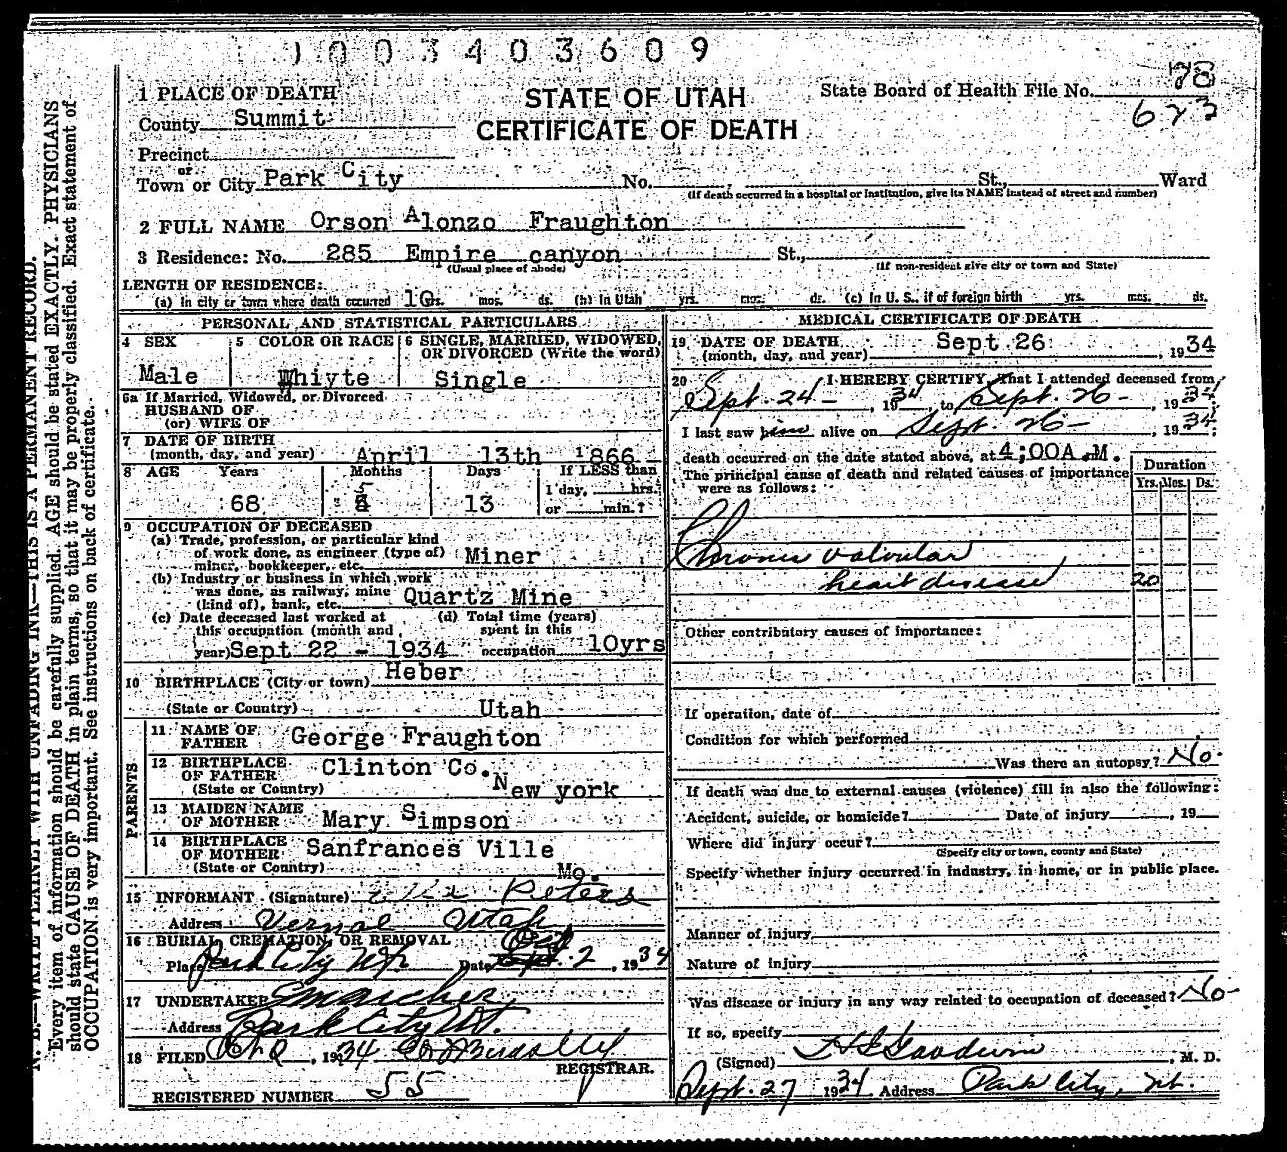 1003403609
STATE OF UTAH
CERTIFICATE OF DEATH
State Board of Health File No. 78
623
1 PLACE OF DEATH
County Summit
Precinct
or
Town or City Park City No. , St., Ward
(If death occurred in a hospital or institution, give its NAME instead of street and number)
2 FULL NAME Orson Alonzo Fraughton
3 Residence: No. 285 Empire canyon St.,
(Usual place of abode) (If non-resident give city or town and State)
LENGTH OF RESIDENCE:
(a) In city or town where death occurred 10 yrs. mos. ds. (b) In Utah yrs. mos. ds. (c) In U. S., if of foreign birth yrs. mos. ds.
PERSONAL AND STATISTICAL PARTICULARS
4 SEX
Male
5 COLOR OR RACE
Whiyte
6 SINGLE, MARRIED, WIDOWED,
OR DIVORCED (Write the word)
Single
6a If Married, Widowed, or Divorced
HUSBAND OF
(or) WIFE OF
7 DATE OF BIRTH
(month, day, and year) April 13th 1866
8 AGE Years Months Days If LESS than
1 day, hrs.
or min.?
68 5 13
9 OCCUPATION OF DECEASED
(a) Trade, profession, or particular kind
of work done, as engineer (type of)
miner, bookkeeper, etc. Miner
(b) Industry or business in which work
was done, as railway, mine
(kind of), bank, etc. Quartz Mine
(c) Date deceased last worked at
this occupation (month and
year) Sept 22 - 1934
(d) Total time (years)
spent in this
occupation 10yrs
10 BIRTHPLACE (City or town) Heber
(State or Country) Utah
PARENTS
11 NAME OF
FATHER George Fraughton
12 BIRTHPLACE
OF FATHER Clinton Co.
(State or Country) New york
13 MAIDEN NAME
OF MOTHER Mary Simpson
14 BIRTHPLACE
OF MOTHER Sanfrances Ville
(State or Country) Mo.
15 INFORMANT (Signature) Peters
Address Vernal Utah
16 BURIAL, CREMATION, OR REMOVAL
Place Park City Date Oct 2, 1934
17 UNDERTAKER
Address Park City Ut.
18 FILED , 1934
REGISTRAR.
REGISTERED NUMBER 55
MEDICAL CERTIFICATE OF DEATH
19 DATE OF DEATH
(month, day, and year) Sept 26, 1934
20 I HEREBY CERTIFY, That I attended deceased from
Sept. 24-, 1934, to Sept. 26-, 1934;
I last saw him alive on Sept. 26-, 1934;
death occurred on the date stated above, at 4;00A.M.
The principal cause of death and related causes of importance
were as follows:
Duration
Yrs. Mos. Ds.
Chronic valvular
heart disease 20
Other contributory causes of importance:
If operation, date of
Condition for which performed
Was there an autopsy? No-
If death was due to external causes (violence) fill in also the following:
Accident, suicide, or homicide? Date of injury , 19
Where did injury occur?
(Specify city or town, county and State)
Specify whether injury occurred in industry, in home, or in public place.
Manner of injury
Nature of injury
Was disease or injury in any way related to occupation of deceased? No-
If so, specify
(Signed) Goodwin , M. D.
Sept. 27 1934 Address Park City, Ut.
N. B.—WRITE PLAINLY WITH UNFADING INK—THIS IS A PERMANENT RECORD.
Every item of information should be carefully supplied. AGE should be stated EXACTLY. PHYSICIANS
should state CAUSE OF DEATH in plain terms, so that it may be properly classified. Exact statement of
OCCUPATION is very important. See instructions on back of certificate.